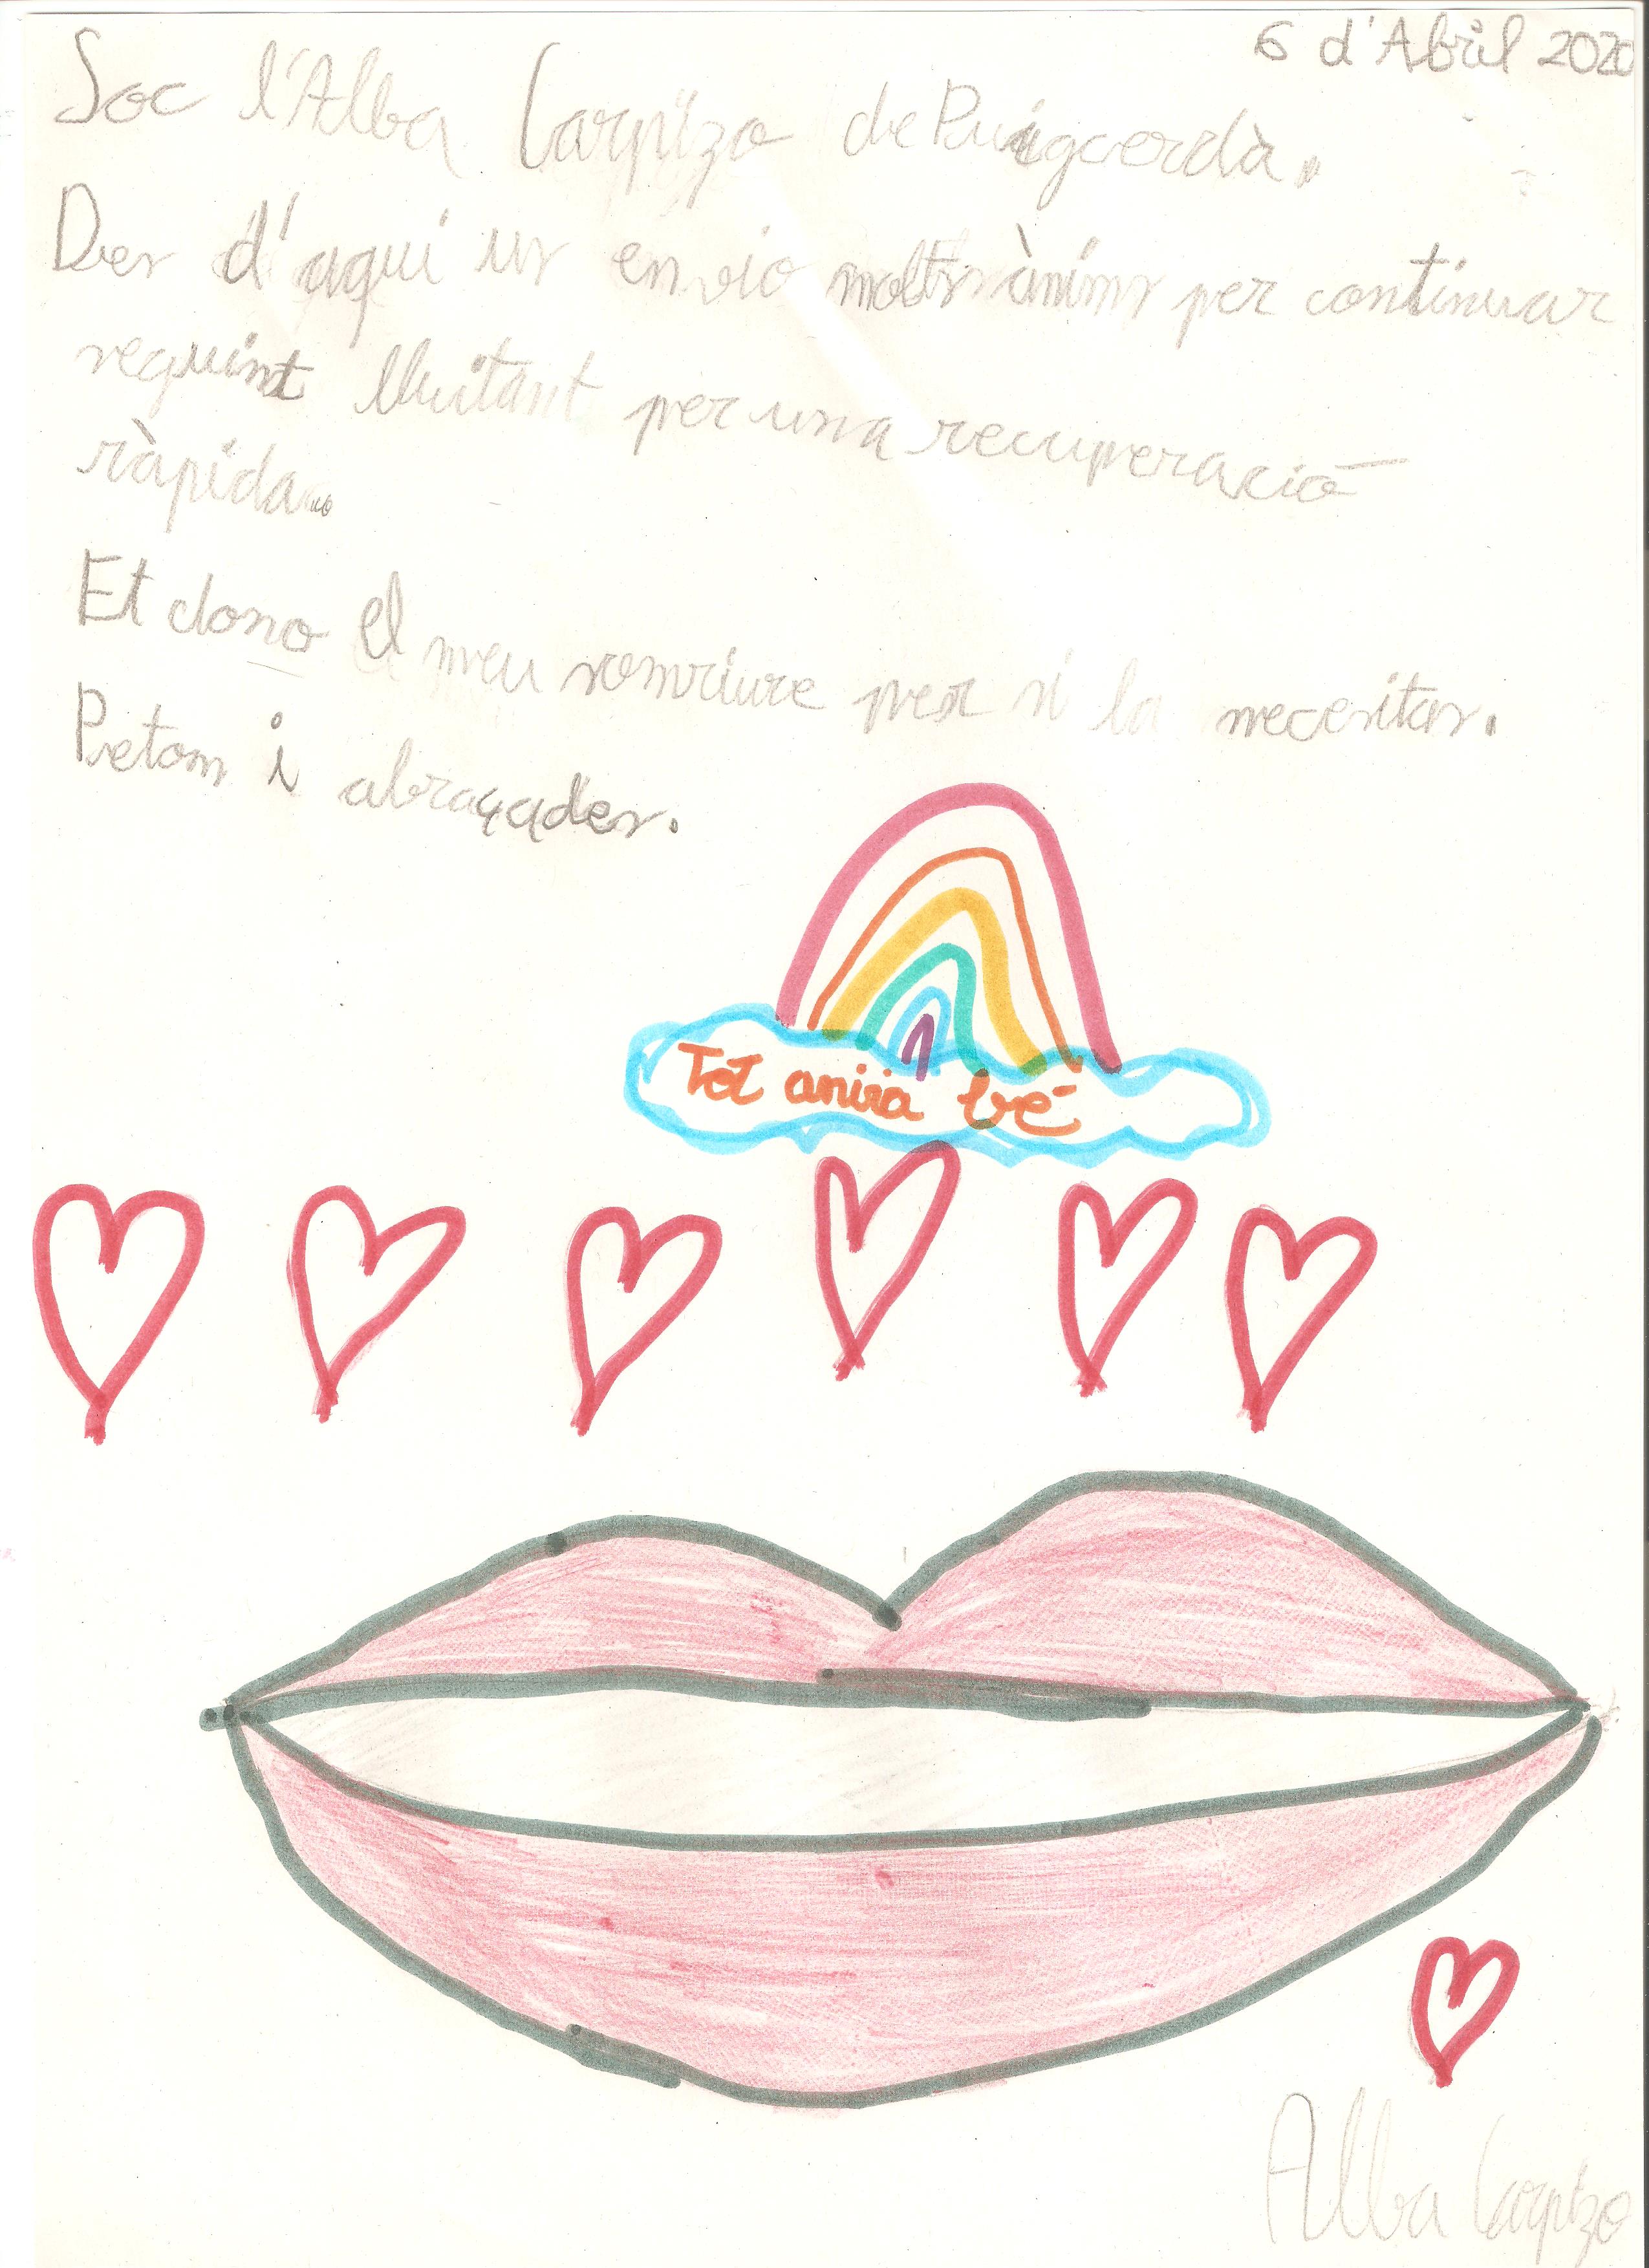 6 d'Abril 2020
Soc l'Alba Carpizo de Puigcerdà.
Des d'aqui us envio molts ànims per continuar
seguint lluitant per una recuperació
ràpida...
Et dono el meu somriure per si la necesitas.
Petom i abraçades.
Tot anira bé
Alba Carpizo